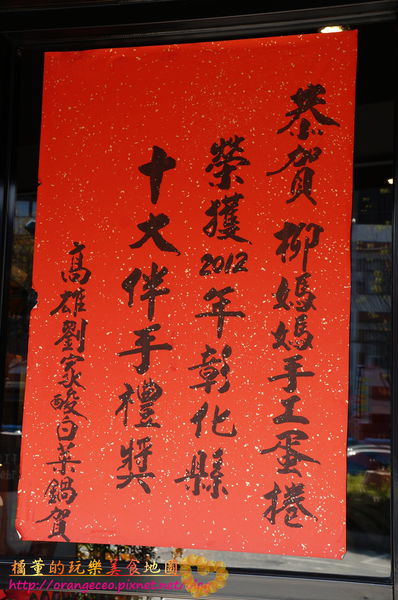 恭賀 柳媽媽手工蛋捲
榮獲2012年彰化縣
十大伴手禮獎
高雄劉家酸白菜鍋賀
橘董的玩樂美食地圖